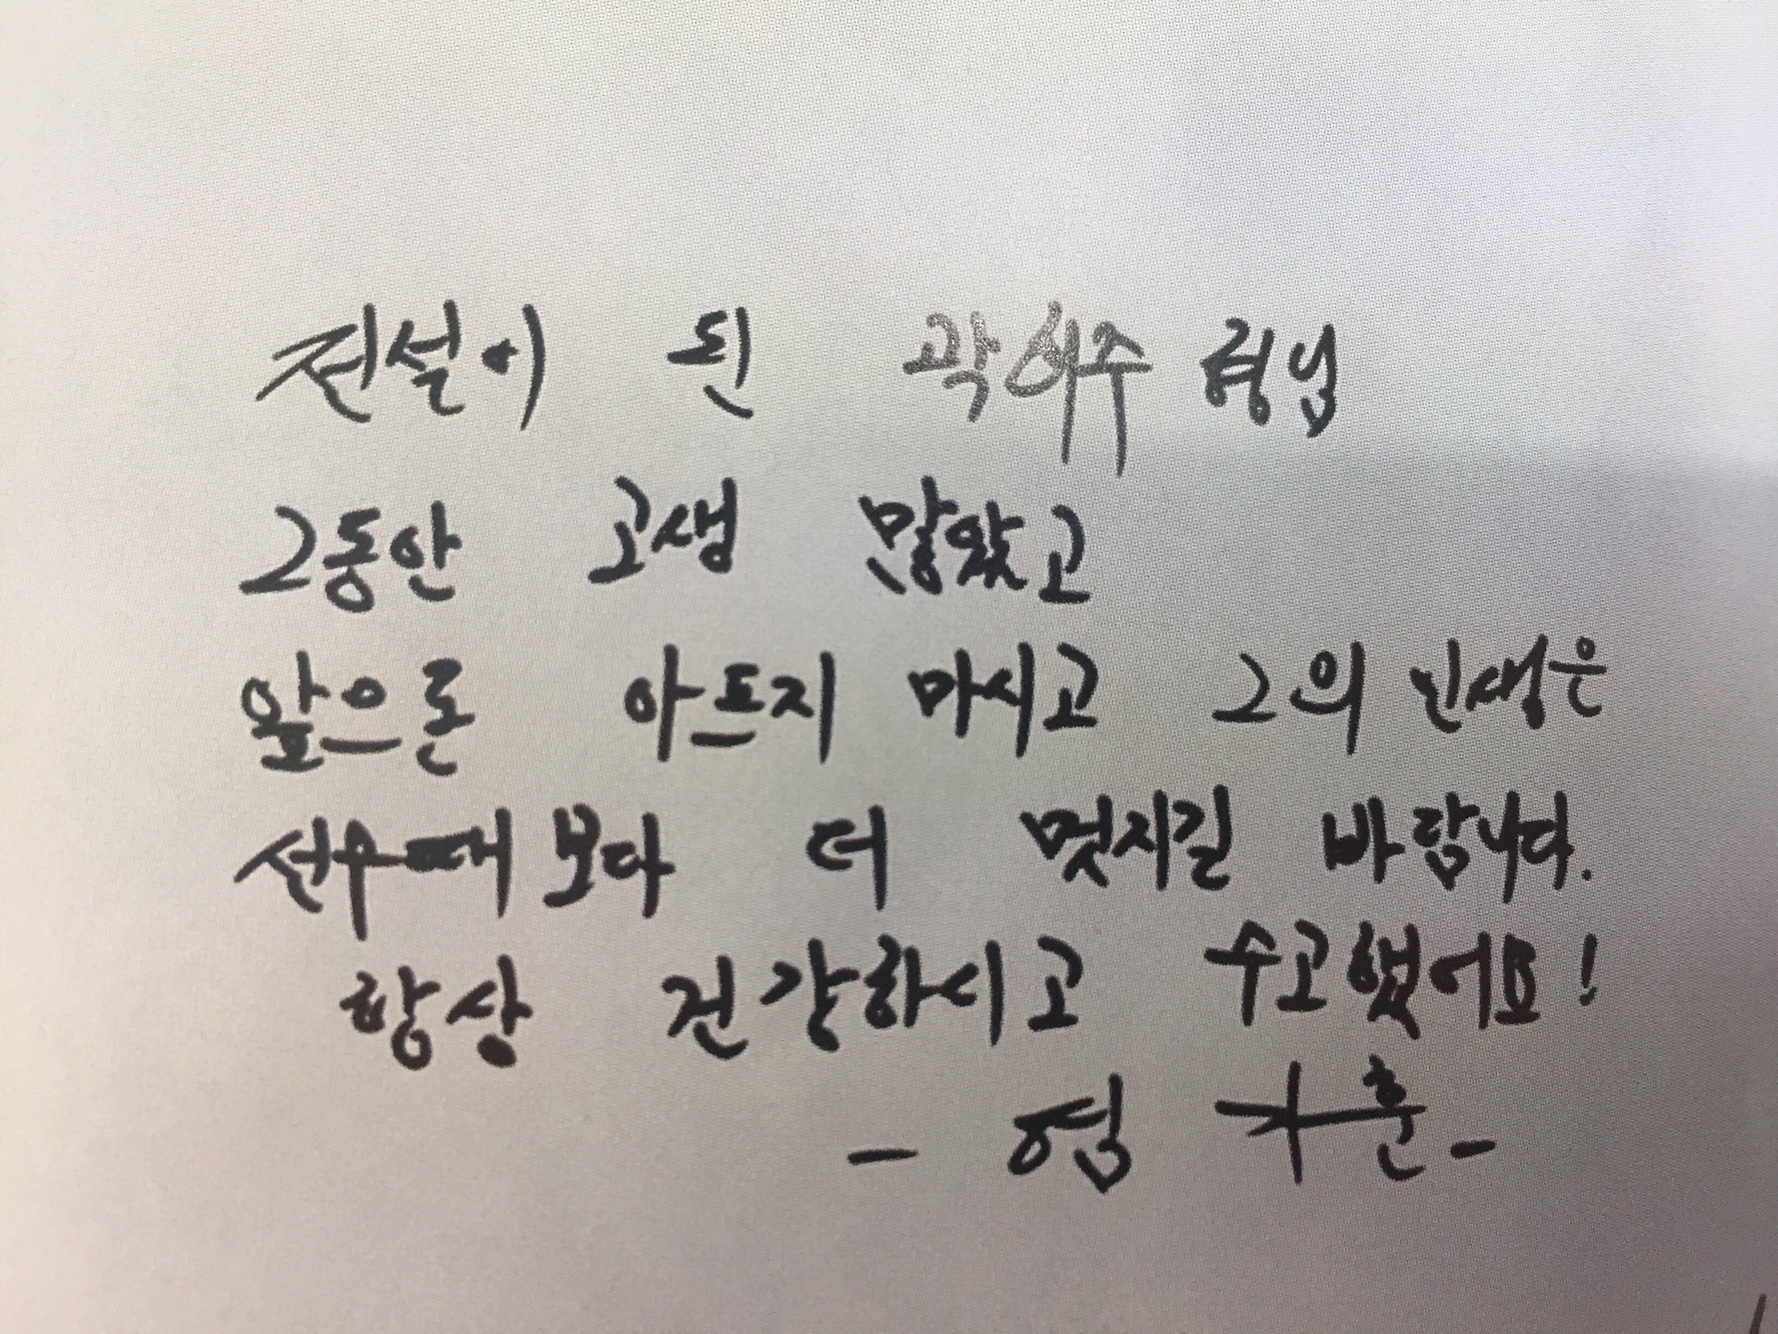 전설이 된 곽희주 형님
그동안 고생 많았고
앞으론 아프지 마시고 그의 인생은
선수때 보다 더 멋지길 바랍니다.
항상 건강하시고 수고했어요!
- 염기훈 -